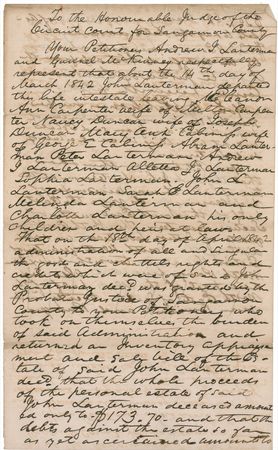 To the Honourable Judge of the
Circuit Court for Sangamon County
Your Petitioners Andrew J Lanterman
and Gabriel McKinney respectfully
represent that about the 14th day of
March 1842 John Lanterman departed
this life intestate leaving
Ann Carpenter wife of Carpen
ter Nancy Duncan wife of Joseph
Duncan Mary Ann wife
of George E Abram Lanter
man Peter Lanterman Andrew
J Lanterman Lanterman
Sophia Lanterman John L
Lanterman Sarah E Lanterman
Melinda Lanterman and
Charlotte Lanterman his only
children and heirs at laws
That on the day of April 1842
administration of all and singular
the goods and chattels rights and
credits which were of said John
Lanterman decd was granted by the
Probate Justice of Sangamon
County to your Petitioners who
took on themselves the burden
of said Administration and
returned an Inventory Appraise
ment and Sale bill of the Es
tate of said John Lanterman
decd that the whole proceeds
of the personal estate of said
John Lanterman deceased amount
ed only to $173.70 and that the
debts against the estate so far
as yet ascertained amounts to